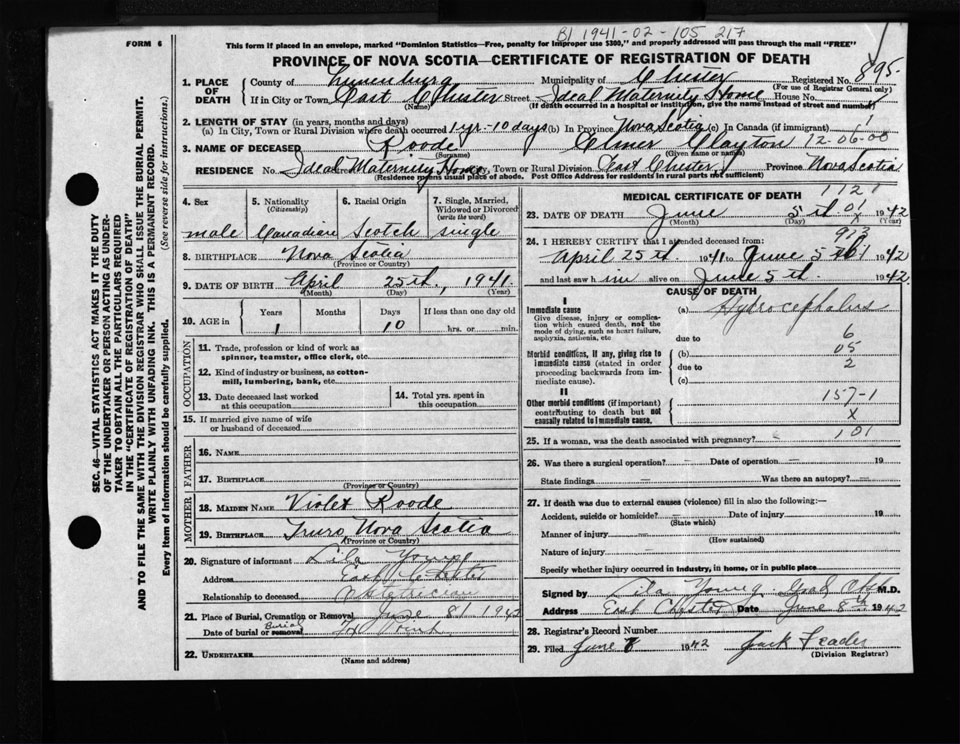 BJ 1941-02-105 217
FORM 6
This form if placed in an envelope, marked "Dominion Statistics—Free, penalty for improper use $300," and properly addressed will pass through the mail "FREE"
PROVINCE OF NOVA SCOTIA—CERTIFICATE OF REGISTRATION OF DEATH
1. PLACE OF DEATH
County of Lunenburg Municipality of Chester Registered No. 895
(For use of Registrar General only)
If in City or Town East Chester Street Ideal Maternity Home House No.
(Name) (If death occurred in a hospital or institution, give the name instead of street and number)
2. LENGTH OF STAY (in years, months and days)
(a) In City, Town or Rural Division where death occurred 1 yr-10 days (b) In Province Nova Scotia (c) In Canada (if immigrant) 1
3. NAME OF DECEASED Roode Elmer Clayton 12-06-00
(Surname) (Given name or names)
RESIDENCE No. Ideal Maternity Home City, Town or Rural Division East Chester Province Nova Scotia
(Residence means usual place of abode. Post Office Address for residents in rural parts not sufficient)
4. Sex male
5. Nationality (Citizenship) Canadian
6. Racial Origin Scotch
7. Single, Married, Widowed or Divorced (write the word) single
8. BIRTHPLACE Nova Scotia
(Province or Country)
9. DATE OF BIRTH April 25th, 1941.
(Month) (Day) (Year)
10. AGE in Years 1 Months Days 10 If less than one day old hrs. or min.
OCCUPATION
11. Trade, profession or kind of work as spinner, teamster, office clerk, etc.
12. Kind of industry or business, as cotton-mill, lumbering, bank, etc.
13. Date deceased last worked at this occupation
14. Total yrs. spent in this occupation
15. If married give name of wife or husband of deceased
FATHER
16. NAME
17. BIRTHPLACE
(Province or Country)
MOTHER
18. MAIDEN NAME Violet Roode
19. BIRTHPLACE Truro Nova Scotia
(Province or Country)
20. Signature of informant Lila Young
Address East Chester
Relationship to deceased Obstetrician
21. Place of Burial, Cremation or Removal June 8, 1942
Burial
Date of burial or removal
22. UNDERTAKER
(Name and address)
MEDICAL CERTIFICATE OF DEATH
1121
23. DATE OF DEATH June 5th 01 1942
(Month) (Day) (Year)
913
24. I HEREBY CERTIFY that I attended deceased from:
April 25th 1941 to June 5th 1942
and last saw him alive on June 5th 1942
CAUSE OF DEATH
I
Immediate cause
Give disease, injury or complication which caused death, not the mode of dying, such as heart failure, asphyxia, asthenia, etc.
(a) Hydrocephalus
due to 6
Morbid conditions, if any, giving rise to immediate cause (stated in order proceeding backwards from immediate cause).
(b) 05
due to 2
(c)
II
Other morbid conditions (if important) contributing to death but not causally related to immediate cause.
157-1
X
101
25. If a woman, was the death associated with pregnancy?
26. Was there a surgical operation? — Date of operation — 19
State findings — Was there an autopsy? —
27. If death was due to external causes (violence) fill in also the following:—
Accident, suicide or homicide? — Date of injury 19
(State which)
Manner of injury —
(How sustained)
Nature of injury —
Specify whether injury occurred in industry, in home, or in public place
Signed by Lila Young M.D.
Address East Chester Date June 8th 1942
28. Registrar's Record Number
29. Filed June 8 1942 Jack
(Division Registrar)
SEC. 46—VITAL STATISTICS ACT MAKES IT THE DUTY
OF THE UNDERTAKER OR PERSON ACTING AS UNDER-
TAKER TO OBTAIN ALL THE PARTICULARS REQUIRED
IN THE "CERTIFICATE OF REGISTRATION OF DEATH"
AND TO FILE THE SAME WITH THE DIVISION REGISTRAR WHO SHALL ISSUE THE BURIAL PERMIT.
WRITE PLAINLY WITH UNFADING INK. THIS IS A PERMANENT RECORD.
Every item of information should be carefully supplied. (See reverse for instructions.)